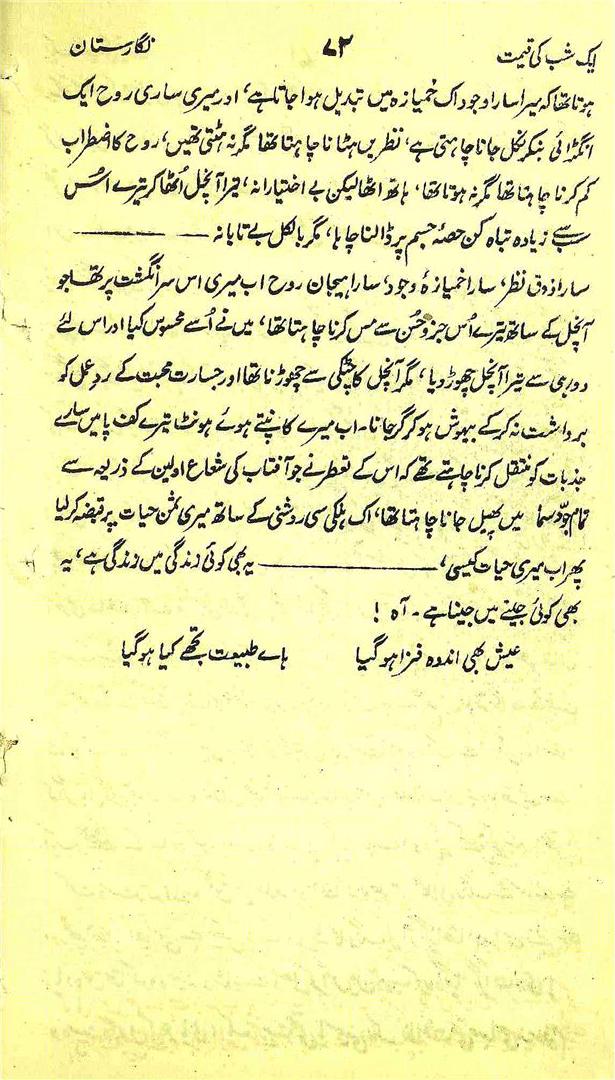 ایک شب کی قیمت ۷۲ نگارستان
ہوتا تھا کہ میرا سارا وجود اک خمیازہ میں تبدیل ہوا جاتا ہے، اور میری ساری روح ایک
انگڑائی بنکر نکل جانا چاہتی ہے، نظریں ہٹانا چاہتا تھا مگر نہ ہٹتی تھیں، روح کا اضطراب
کم کرنا چاہتا تھا مگر نہ ہوتا تھا، ہاتھ اٹھا لیکن بے اختیارانہ، تیرا آنچل اُٹھا کر تیرے اُس
سب سے زیادہ تباہ کن حصۂ جسم پر ڈالنا چاہا، مگر بالکل بے تابانہ ——— ———
سارا ذوق نظر، سارا خمیازۂ وجود، سارا ہیجان روح اب میری اس سر انگشت پر تھا جو
آنچل کے ساتھ تیرے اُس جزو حُسن سے مس کرنا چاہتا تھا، میں نے اُسے محسوس کیا اور اس لئے
دور ہی سے تیرا آنچل چھوڑ دیا، مگر آنچل کا چٹکی سے چھوڑنا تھا اور جسارت محبت کے رد عمل کو
برداشت نہ کرکے بیہوش ہو کر گر جانا۔ اب میرے کانپتے ہوئے ہونٹ تیرے کف پا میں سارے
جذبات کو منتقل کرنا چاہتے تھے کہ اس کے تعطر نے جو آفتاب کی شعاع اولین کے ذریعہ سے
تمام جوّ سما میں پھیل جانا چاہتا تھا، اک ہلکی سی روشنی کے ساتھ میری ثمن حیات پر قبضہ کر لیا
پھر اب میری حیات کیسی، ——— یہ بھی کوئی زندگی میں زندگی ہے، یہ
بھی کوئی جینے میں جینا ہے۔ آہ !
عیش بھی اندوہ فزا ہو گیا ہاے طبیعت تجھے کیا ہو گیا